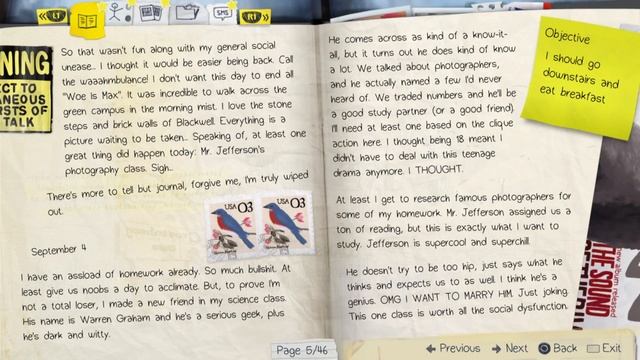 LT
SMS
RT
NING
ECT TO
ANEOUS
RSTS OF
TALK
So that wasn't fun along with my general social
unease... I thought it would be easier being back. Call
the waaahmbulance! I don't want this day to end all
"Woe Is Max". It was incredible to walk across the
green campus in the morning mist. I love the stone
steps and brick walls of Blackwell. Everything is a
picture waiting to be taken... Speaking of, at least one
great thing did happen today: Mr. Jefferson's
photography class. Sigh...
There's more to tell but journal, forgive me, I'm truly wiped
out.
USA 03
USA 03
September 4
I have an assload of homework already. So much bullshit. At
least give us noobs a day to acclimate. But, to prove I'm
not a total loser, I made a new friend in my science class.
His name is Warren Graham and he's a serious geek, plus
he's dark and witty.
He comes across as kind of a know-it-
all, but it turns out he does kind of know
a lot. We talked about photographers,
and he actually named a few I'd never
heard of. We traded numbers and he'll be
a good study partner (or a good friend).
I'll need at least one based on the clique
action here. I thought being 18 meant I
didn't have to deal with this teenage
drama anymore. I THOUGHT.
At least I get to research famous photographers for
some of my homework. Mr. Jefferson assigned us a
ton of reading, but this is exactly what I want to
study. Jefferson is supercool and superchill.
He doesn't try to be too hip, just says what he
thinks and expects us to as well. I think he's a
genius. OMG I WANT TO MARRY HIM. Just joking.
This one class is worth all the social dysfunction.
Objective
I should go
downstairs and
eat breakfast
new album released
THE SOUND
Page 5/46
Previous
Next
Back
Exit